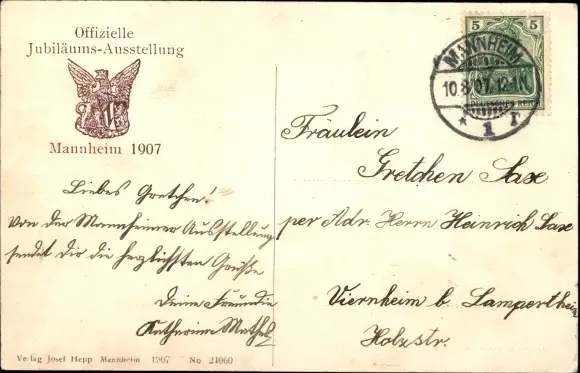 Offizielle
Jubiläums-Ausstellung
Mannheim 1907
Liebes Gretchen!
Von der Mannheimer Ausstellung
sendet dir die herzlichsten Grüße
Deine Freundin
Katharina
Verlag Josef Hepp, Mannheim 1907 No 24060
5 5
DEUTSCHES REICH
MANNHEIM
10.8.07. 12-1N
* 1 r
Fräulein
Gretchen Sax
per Adr. Herrn Heinrich Sax
Viernheim b. Lampertheim
Holzstr.